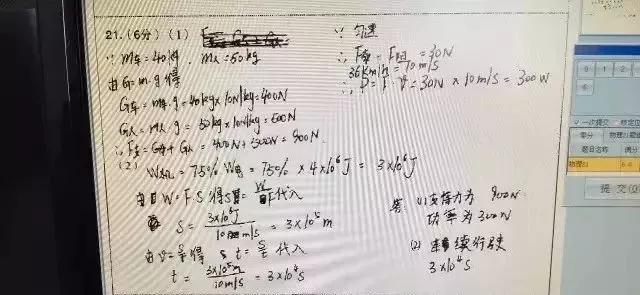 21.(6分)(1)
∵ m车=40kg, m人=50kg
由G=m·g得
G车=m车·g=40kg×10N/kg=400N
G人=m人·g=50kg×10N/kg=500N
∴F支=G车+G人=400N+500N=900N.
(2)
W机=75% W电=75%×4×10⁶J=3×10⁶J
由 W=F·S 得S= 代入
S=3×10⁶J/ m/s=3×10⁵m
由v=s/t得 t= 代入
t=3×10⁵m/10m/s=3×10⁴s
∵匀速
∴F牵=F阻=30N
36km/h=10m/s
∴P=F·v=30N×10m/s=300W
答:(1)支持力为 900N
功率为300W
(2) 续行驶
3×10⁴s
0 1 2
6
一次提交
零分
物理21题
题目名称 满分
物理21 6.0
提交(Q